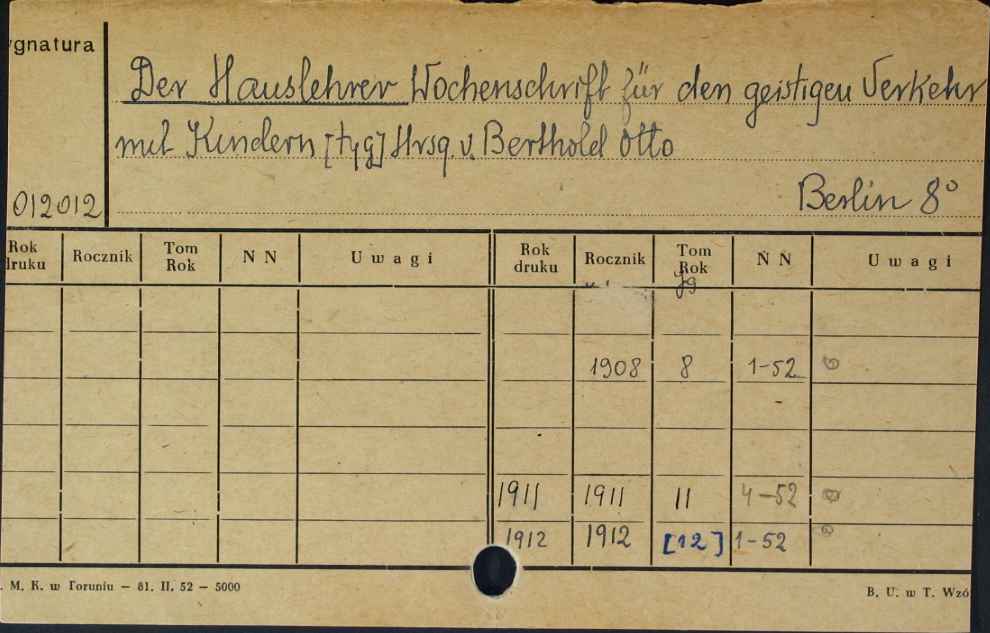 ygnatura
Der Hauslehrer Wochenschrift für den geistigen Verkehr
mit Kindern [tyg] Hrsg. v. Berthold Otto
012012
Berlin 8°
Rok druku Rocznik Tom Rok N N Uwagi Rok druku Rocznik Tom Rok N N Uwagi
Jg
1908 8 1-52
1911 1911 11 4-52
1912 1912 [12] 1-52
. M. K. w Toruniu — 81. II. 52 — 5000
B. U. w T. Wzó